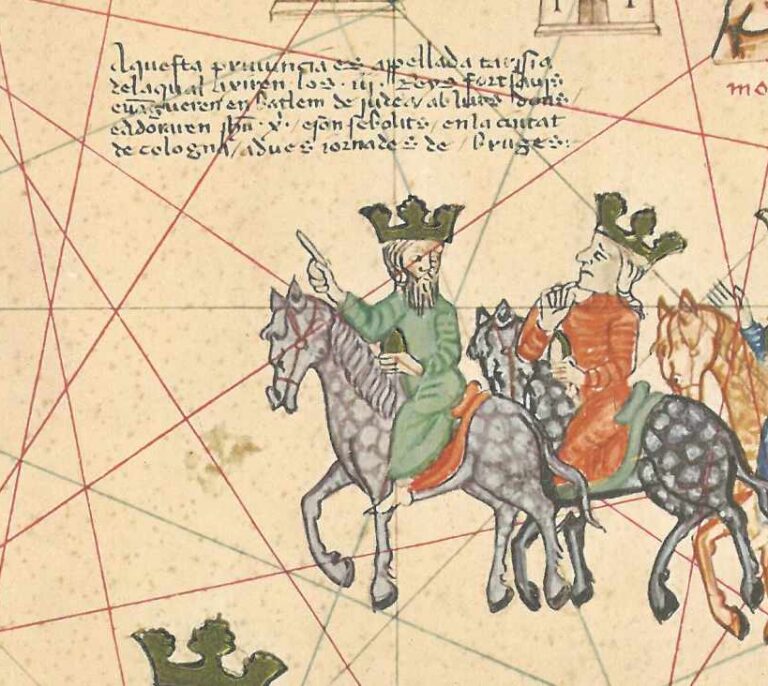 Aquesta prouincia es appellada tarssia
de la qual axiren los iii Reys fort sauis
e uangueren en Batlem de judea ab lurs dons
e adoraren jhu x e son sebolits en la ciutat
de cologna a dues jornades de Bruges
mo